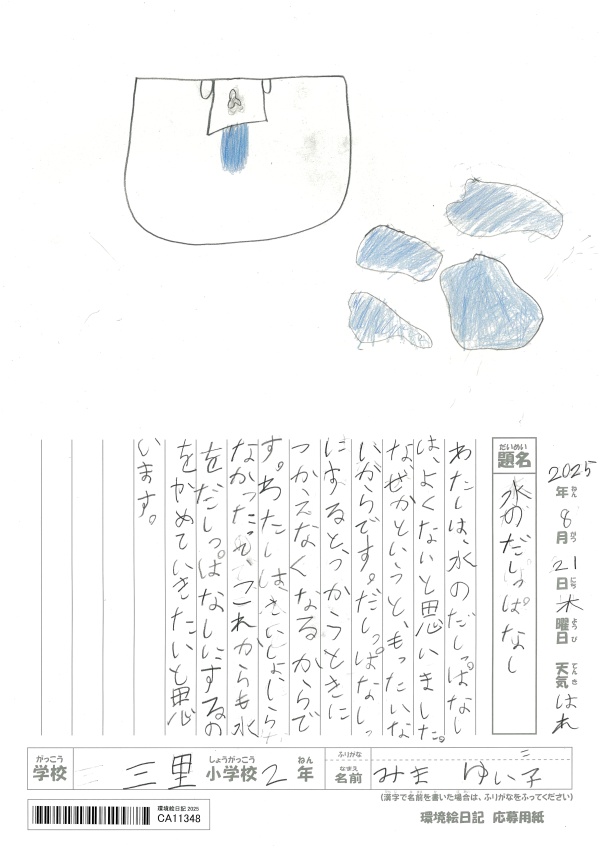 2025年ねん8月がつ21日にち木曜日ようび 天気てんきはれ
だいめい
題名
水のだしっぱなし
わたしは、水のだしっぱなし
は、よくないと思いました。
なぜかというと、もったいな
いからです。だしっぱなしっ
にするとつかうときに
つかえなくなるからで
す。わたしはさいしょしら
なかったて、これからも水
をだしっぱなしにするの
をかめていきたいと思
います。
がっこう
学校
三里
しょうがっこう
小学校
2
ねん
年
ふりがな
なまえ
名前
みま ゆい子
(漢字で名前を書いた場合は、ふりがなをふってください)
環境絵日記 2025
CA11348
環境絵日記 応募用紙